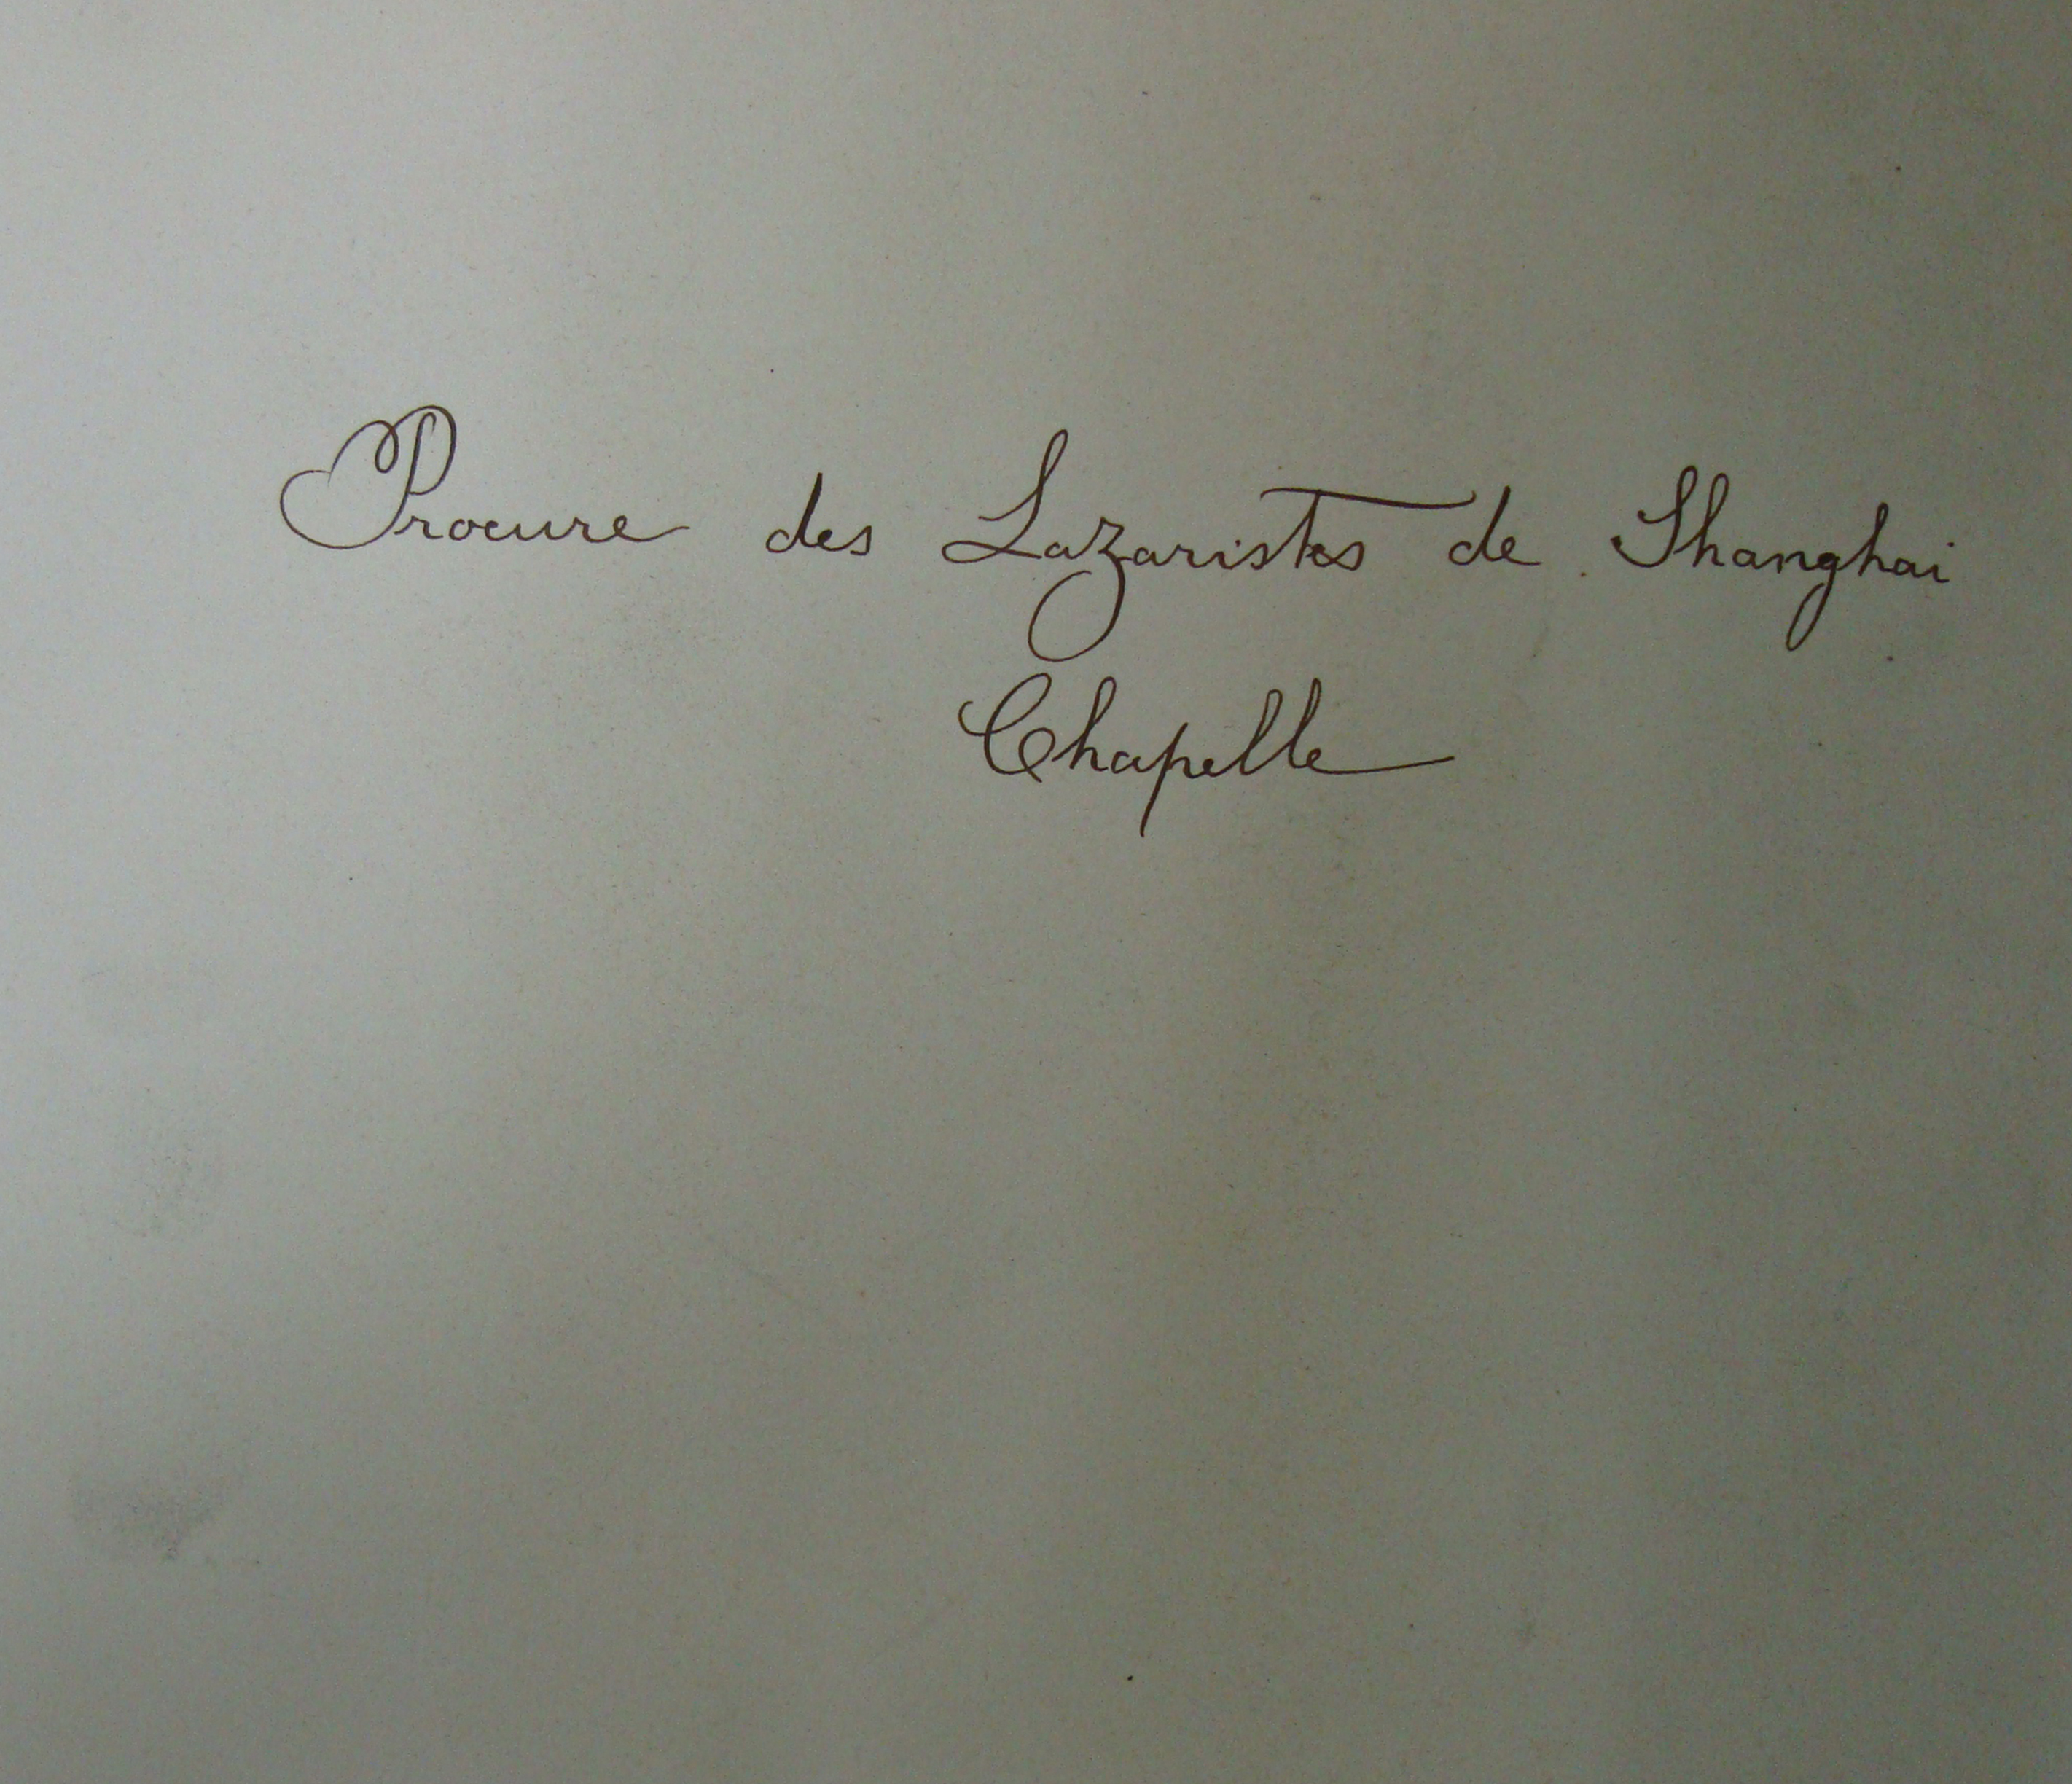 Procure des Lazaristes de Shanghai
Chapelle